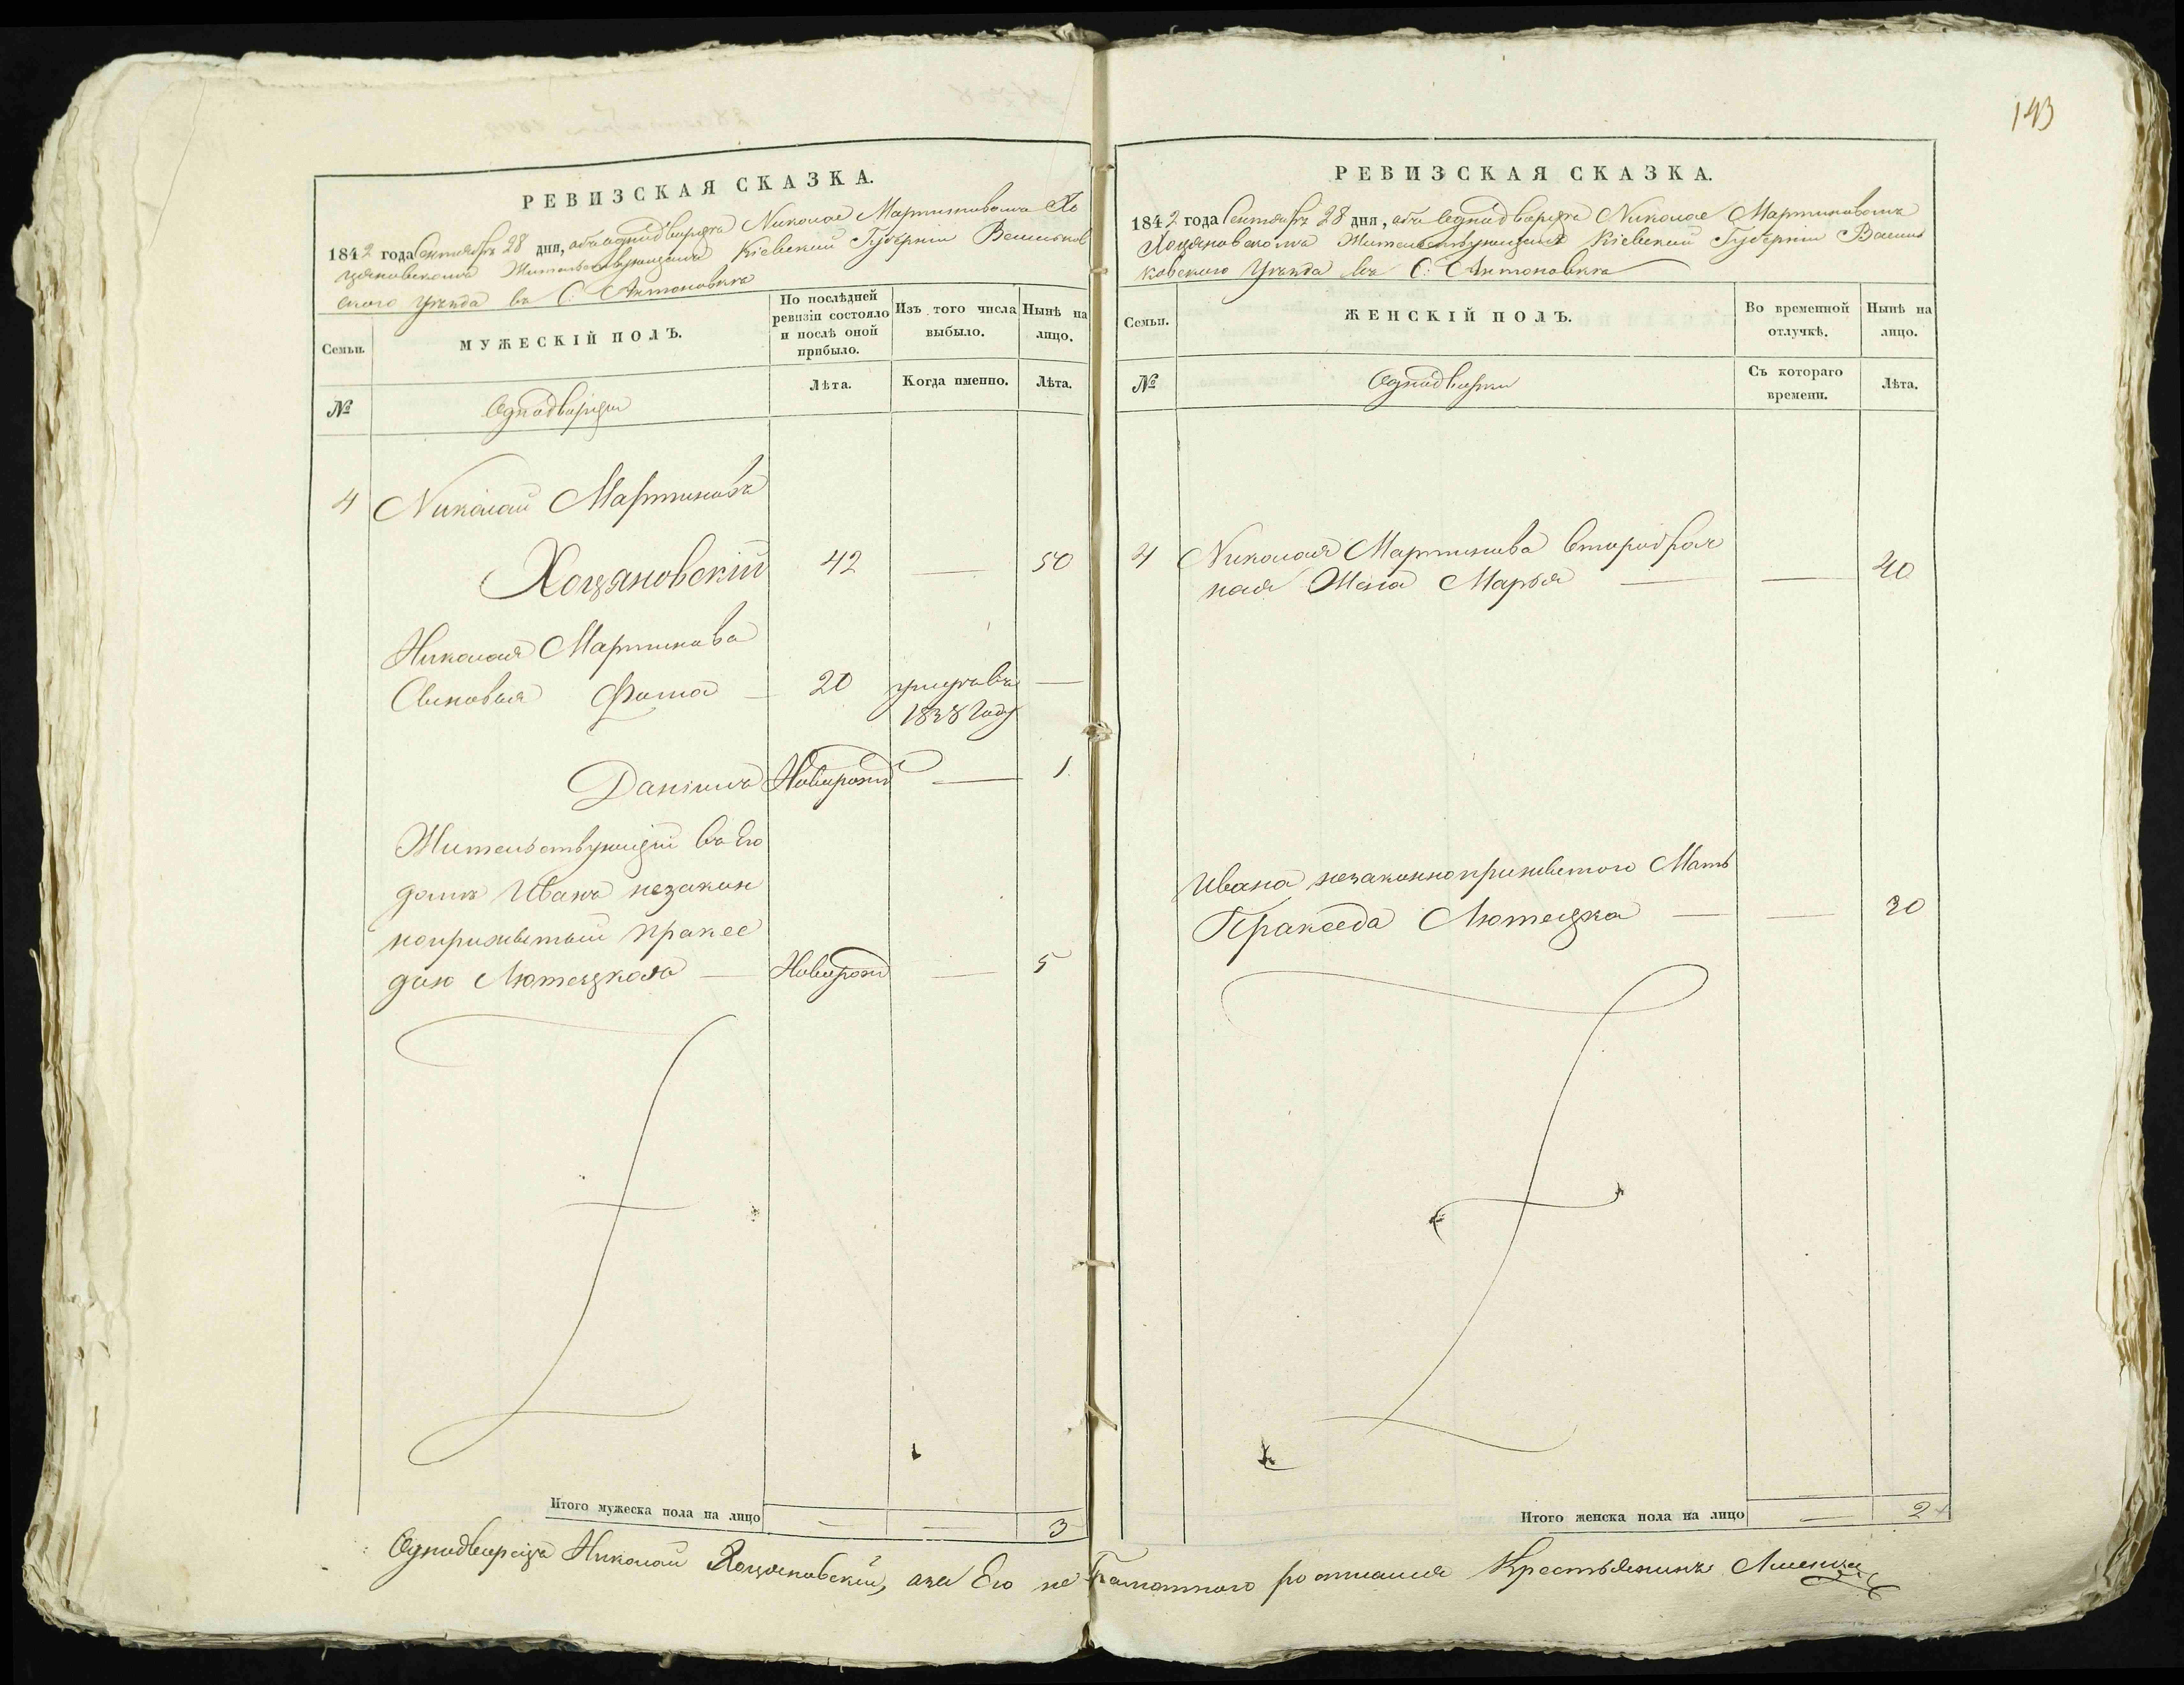 143
РЕВИЗСКАЯ СКАЗКА.
1842 года Сентября 28 дня, объ однодворцѣ Николае Мартиновомъ Хо
цяновскомъ Жительствующемъ Кіевской Губерніи Васильков
ского Уѣзда въ С. Антоновкѣ
Семьи.
МУЖЕСКІЙ ПОЛЪ.
По послѣдней
ревизіи состояло
и послѣ оной
прибыло.
Изъ того числа
выбыло.
Нынѣ на
лицо.
№
Однодворцы
Лѣта.
Когда именно.
Лѣта.
4 Николай Мартиновъ
Хоцяновскій 42 — 50
Николая Мартинова
Сыновья Фома — 20 умеръ въ —
1838 Году
Даніилъ Новорожд — 1
Жительствующій въ Его
домѣ Иванъ незакон
ноприжитый Праксе
дою Лютецкою — Новорожд — 5
Итого мужеска пола на лицо — — 3
РЕВИЗСКАЯ СКАЗКА.
1842 года Сентября 28 дня, объ Однодворцѣ Николае Мартиновомъ
Хоцяновскомъ Жительствующемъ Кіевской Губерніи Василь
ковского Уѣзда въ С. Антоновкѣ
Семьи.
ЖЕНСКІЙ ПОЛЪ.
Во временной
отлучкѣ.
Нынѣ на
лицо.
№
Однодворки
Съ котораго
времени.
Лѣта.
4 Николая Мартинова второбрач
ная Жена Марья — — 40
Ивана незаконноприжитого Мать
Пракседа Лютецка — — 30
Итого женска пола на лицо — 2
Однодворецъ Николай Хоцяновскій, а за Его не Грамотного росписался Крестьянинъ